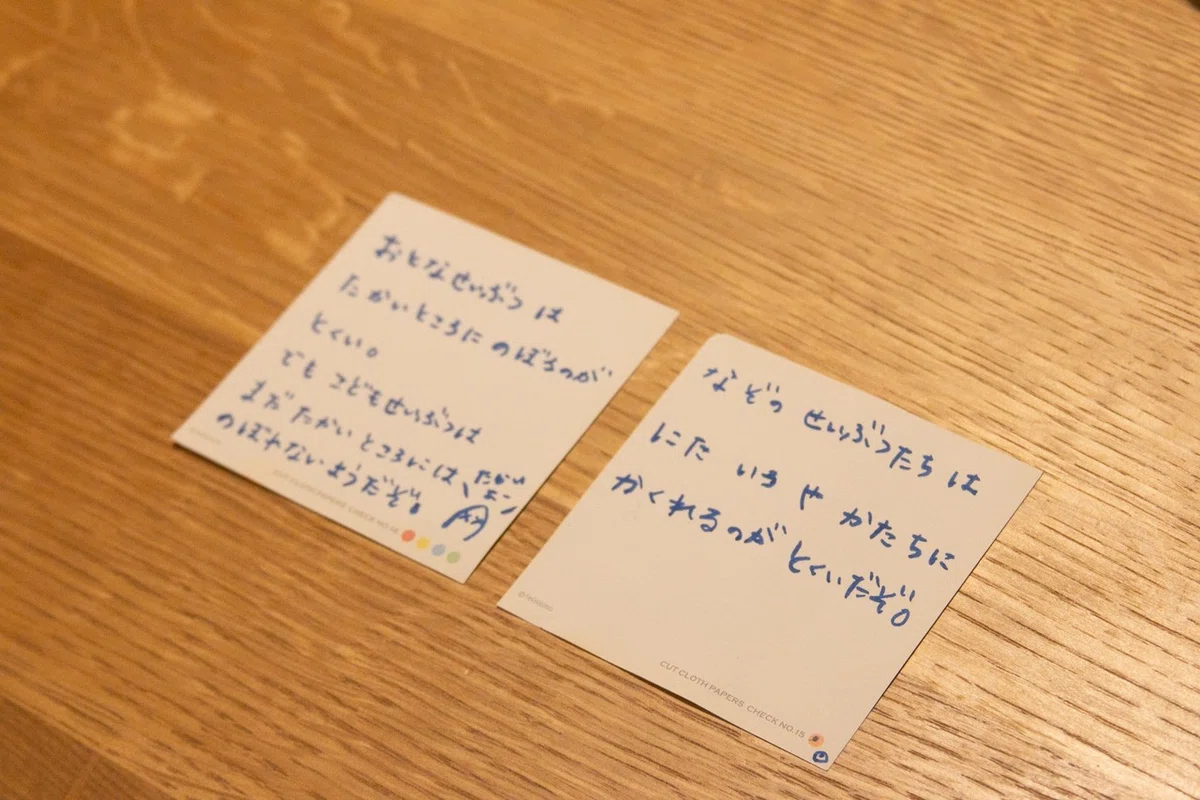 おとなせいぶつ は
たかいところに のぼるのが
とくい。
でも こどもせいぶつは
まだ たかい ところには
のぼれないようだぞ。
たかい
よー
CUT CLOTH PAPERS CHECK NO.14
なぞの せいぶつたち は
にた いろ や かたちに
かくれるのが とくいだぞ。
CUT CLOTH PAPERS CHECK NO.15